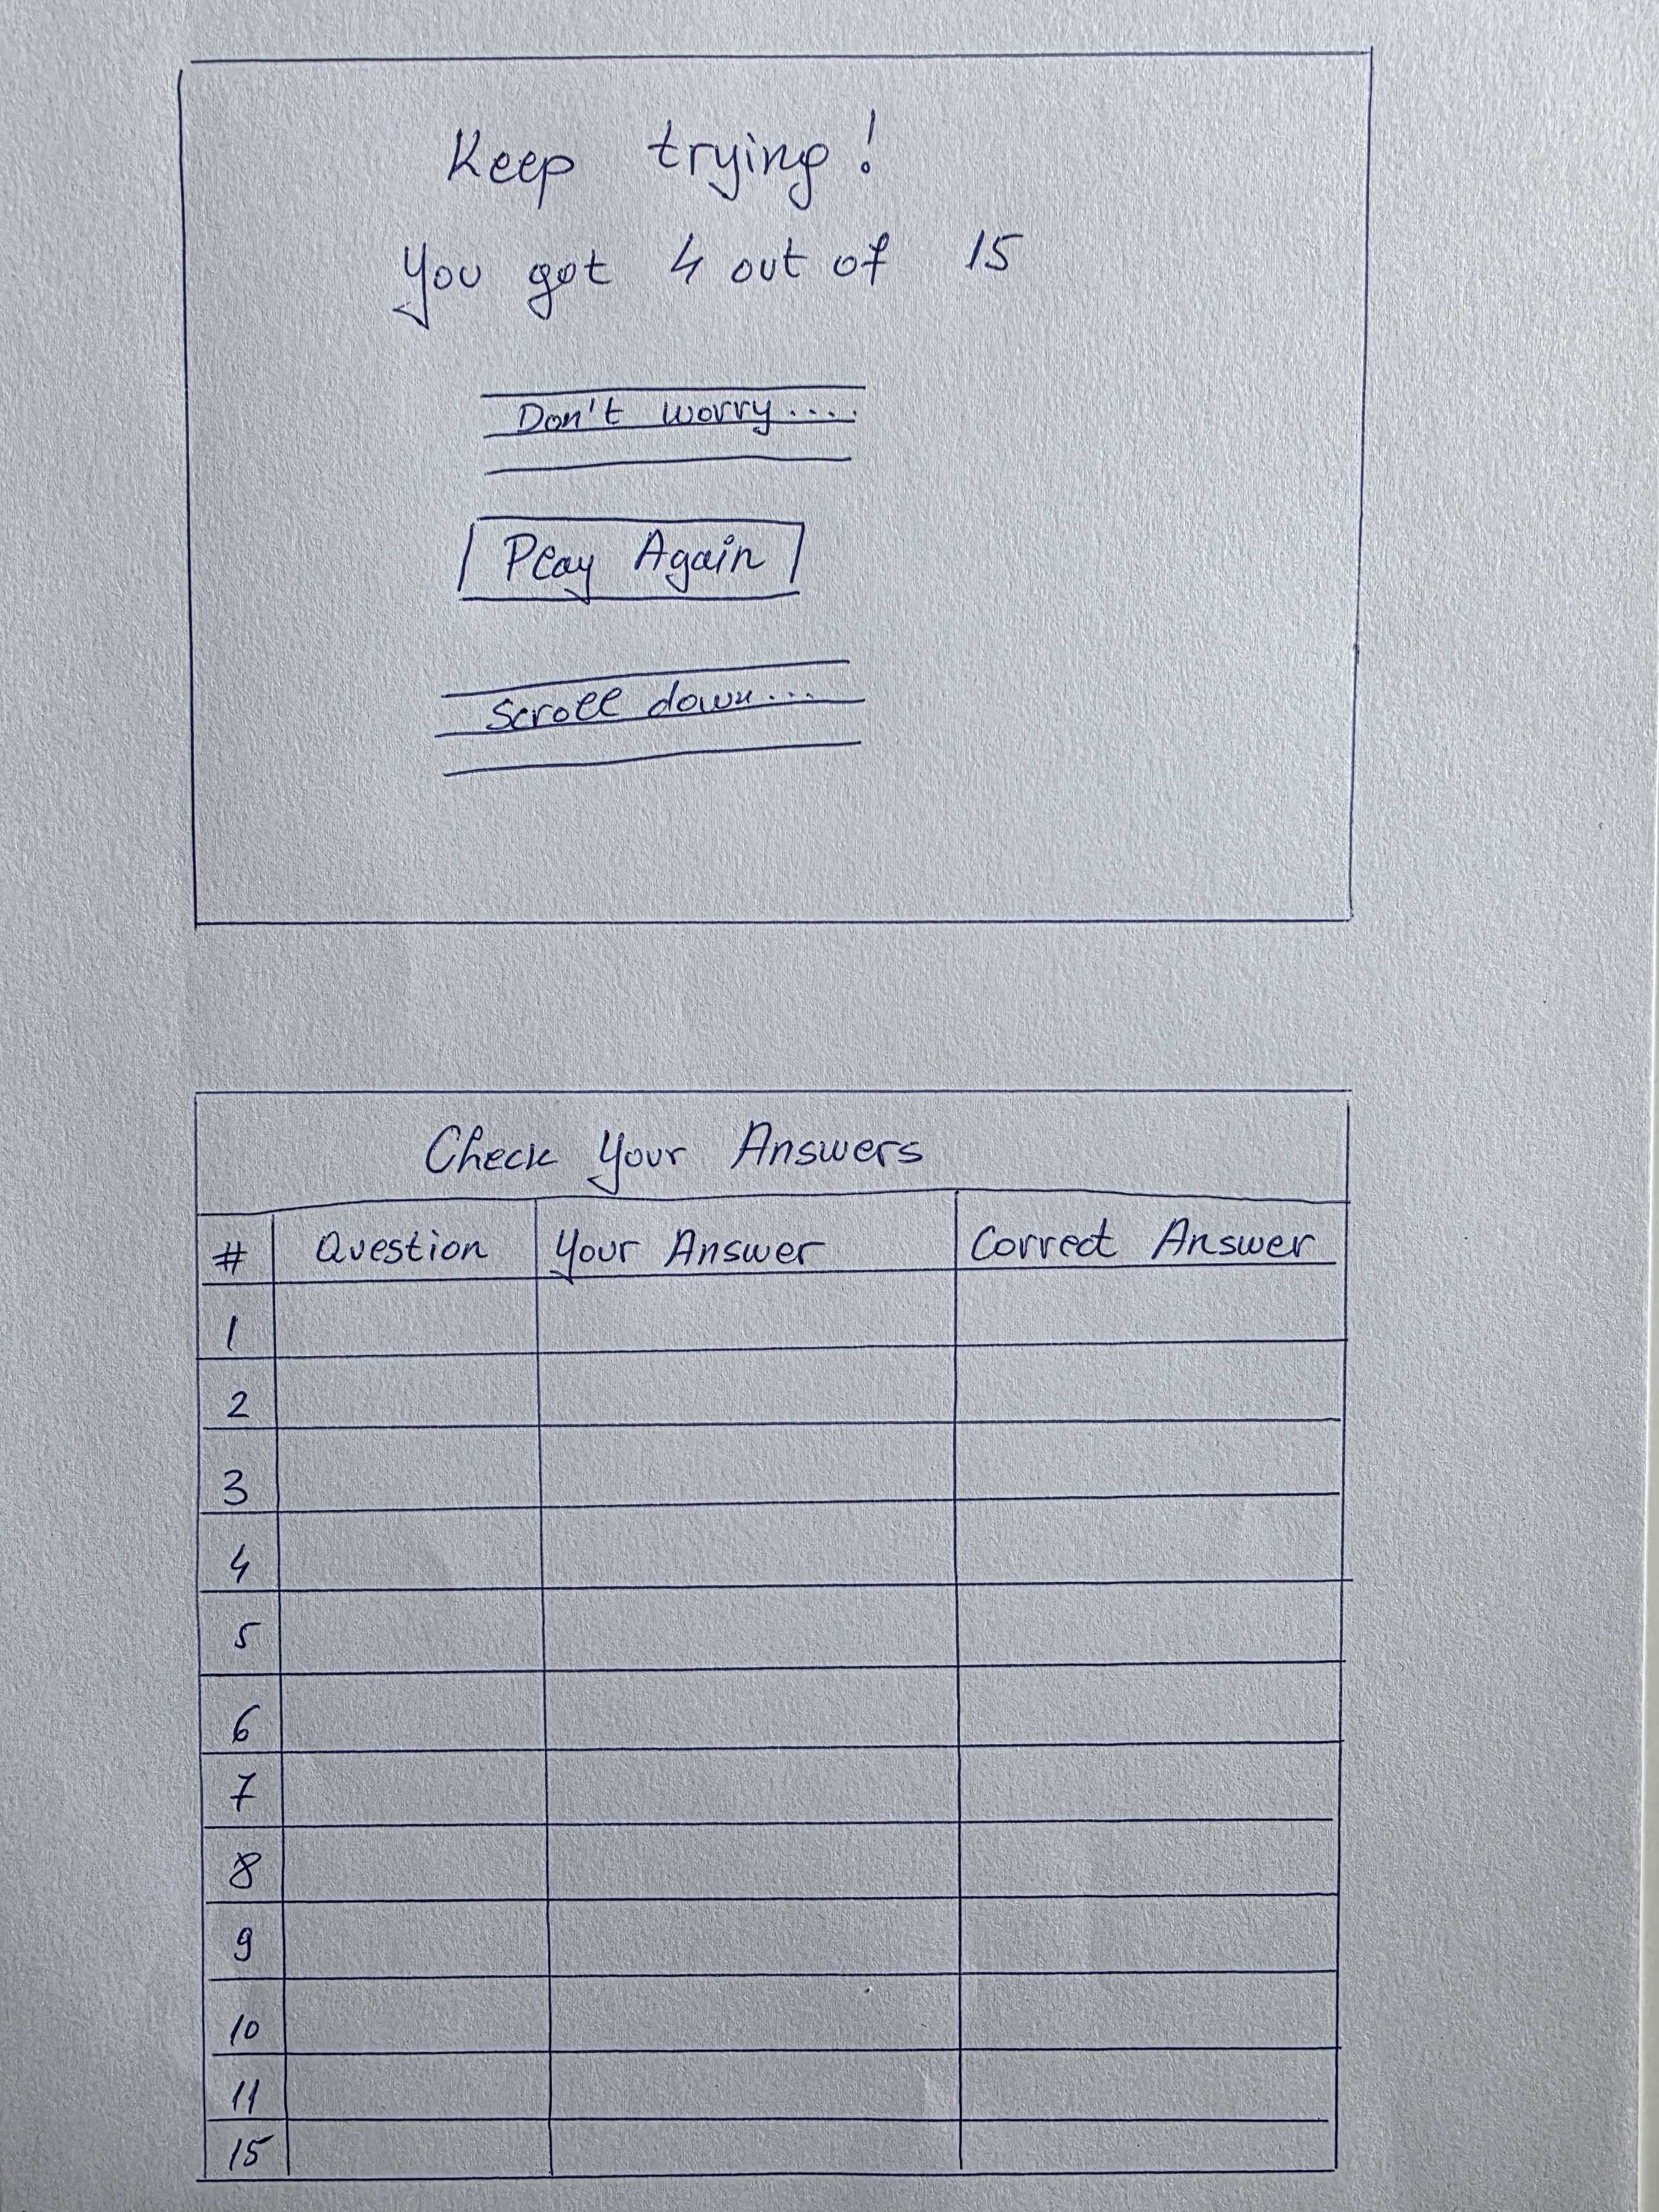 Keep trying!
You got 4 out of 15
Don't worry....
Play Again
Scroll down...
Check Your Answers
# Question Your Answer Correct Answer
1
2
3
4
5
6
7
8
9
10
11
15